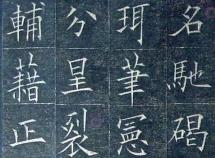 名馳碣
珥筆冕
分呈裂
輔藉正